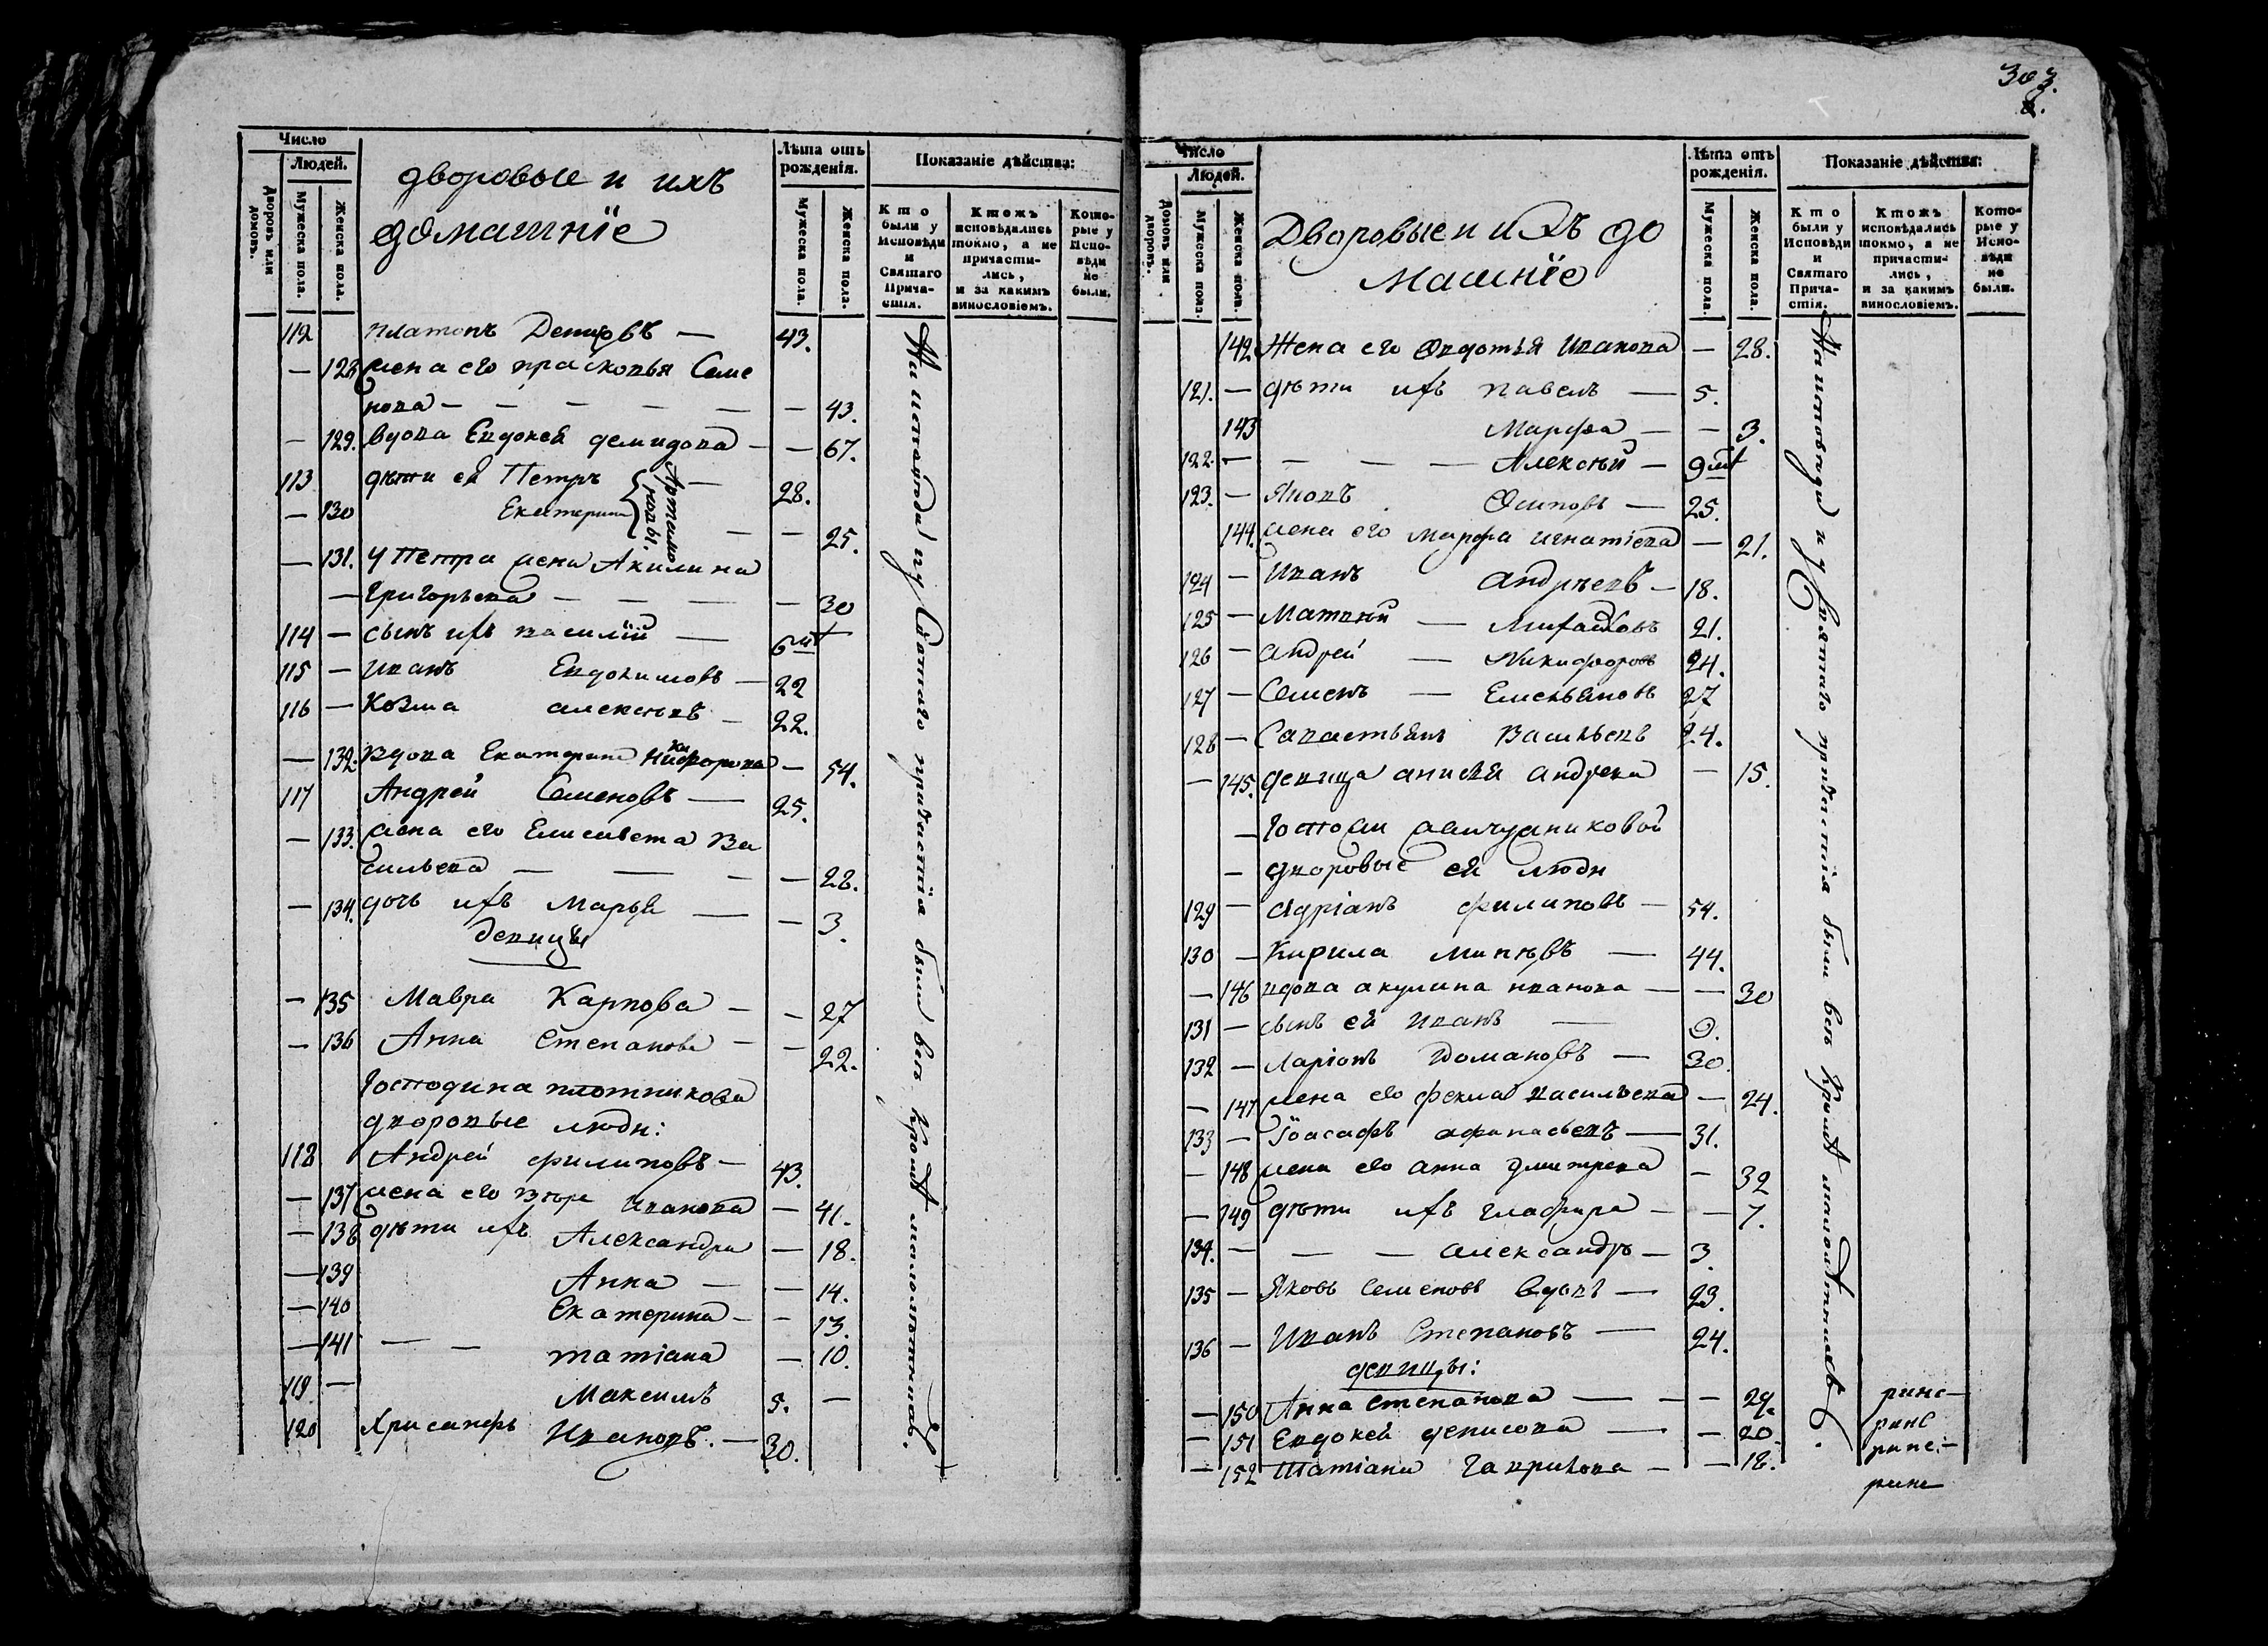 303.
Число
Людей.
Дворовъ или домовъ.
Мужеска пола.
Женска пола.
дворовые и ихъ
домашніе
Лѣта отъ рожденія.
Мужеска пола.
Женска пола.
Показаніе дѣйства:
Кто были у Исповѣди и Святаго Прича-стія.
Ктожъ исповѣдались токмо, а не причасти-лись, и за какимъ винословіемъ.
Кото-рые у Испо-вѣди не были.
112 Платонъ Денисовъ — 43.
— 128 жена его Прасковья Семе
нова — — — — — — 43.
— 129. вдова Евдокея Демидова — — 67.
113 дѣти ея Петръ — 28.
— 130 Екатерина — — 25.
Артемовы.
— 131. у Петра жена Акилина
— Григорьева — — — — 30
114 — сынъ ихъ Василій — 6 мѣ
115 — Иванъ Евдокимовъ — 22
116 — Козма Алексѣевъ — 22.
— 132. вдова Екатерина Никифорова — 54.
117 Андрей Семеновъ — 25.
— 133. жена его Елисавета Ва
сильева — — — — 22.
— 134. дочь ихъ Марья — — 3.
девицы
— 135 Мавра Карпова — — 27
— 136 Анна Степанова — — 22.
Господина Плотникова
дворовые люди:
118 Андрей Филиповъ — 43.
— 137 жена его Вѣра Иванова — 41.
— 138 дѣти ихъ Александра — 18.
— 139 Анна — — 14.
— 140 Екатерина — — 13.
— 141 — — Татіана — 10.
119 — Максимъ 5. —
120 Хрисанфъ Ивановъ. — 30.
На исповѣди и у Святаго причастія были всѣ кромѣ малолѣтнихъ.
Число
Людей.
Домовъ или дворовъ.
Мужеска пола.
Женска пола.
Дворовые и ихъ до
машніе
Лѣта отъ рожденія.
Мужеска пола.
Женска пола.
Показаніе дѣйства:
Кто были у Исповѣди и Святаго Прича-стія.
Ктожъ исповѣдались токмо, а не причасти-лись, и за какимъ винословіемъ.
Кото-рые у Испо-вѣди не были.
142. Жена его Овдотья Иванова — 28.
121. — дѣти ихъ Павелъ — 5.
143 Марфа — — 3.
122. — — — — Алексѣй — 9 мѣ
123. — Яковъ Осиповъ — 25.
144. жена его Марфа Игнатіева — 21.
124 — Иванъ Андреевъ — 18.
125 — Матвѣй — Михайловъ 21.
126 — Андрей — Никифоровъ 24.
127 — Семенъ — Емельяновъ 27
128 — Савастьянъ Васильевъ 24.
— 145. девица Анисья Андреева — 15.
— Госпожи
— дворовые ея люди
129 — Адріанъ Филиповъ — 54.
130 — Кирила Минѣевъ — 44.
— 146 вдова Акулина Иванова — — 30
131 — сынъ ея Иванъ — 9.
132 — Ларіонъ Домановъ — 30.
— 147 жена его Фекла Васильева — 24.
133 — Іоасафъ Афанасьевъ — 31.
— 148 жена его Анна Дмитрева — 32
— 149 дѣти ихъ Глафира — — 7.
134. — — — Александръ — 3.
135 — Яковъ Семеновъ вдовъ — 23.
136 — Иванъ Степановъ — 24.
девицы:
— 150 Анна Степанова — — — 29.
— 151 Евдокея Денисова — — 20
— 152 Татіана Гаврилова — — 18.
На исповѣди и у Святаго причастія были всѣ кромѣ малолѣтнихъ.